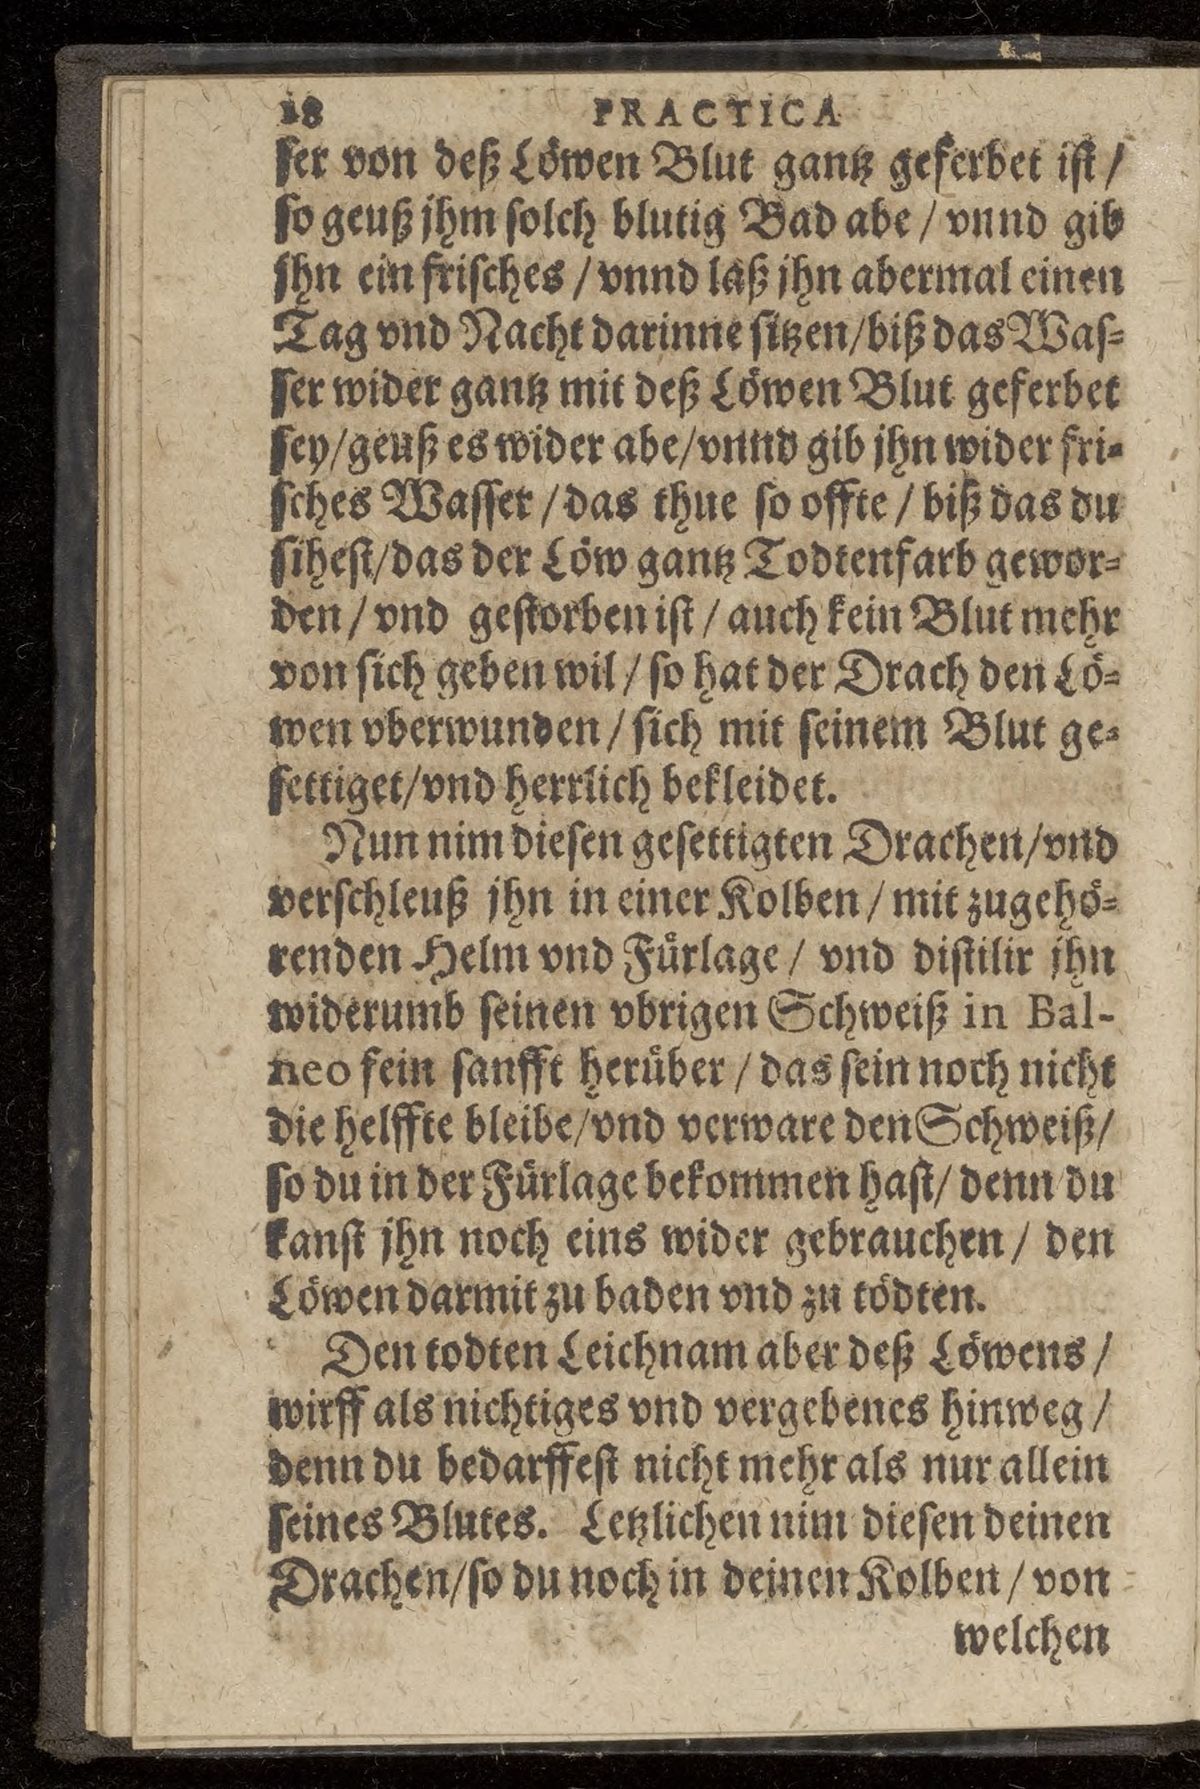 18 PRACTICA
ſer von deß Löwen Blut gantz geferbet iſt /
ſo geuß jhm ſolch blutig Bad abe / vnnd gib
jhn ein friſches / vnnd laß jhn abermal einen
Tag vnd Nacht darinne ſitzen/biß das Waſ⸗
ſer wider gantz mit deß Löwen Blut geferbet
ſey/geuß es wider abe/vnnd gib jhn wider fri⸗
ſches Waſſer / das thue ſo offte / biß das du
ſiheſt/das der Löw gantz Todtenfarb gewor⸗
den / vnd geſtorben iſt / auch kein Blut mehr
von ſich geben wil / ſo hat der Drach den Lö⸗
wen vberwunden / ſich mit ſeinem Blut ge⸗
ſettiget/vnd herrlich bekleidet.
Nun nim dieſen geſettigten Drachen/vnd
verſchleuß jhn in einer Kolben / mit zugehö⸗
renden Helm vnd Fürlage / vnd diſtilir jhn
widerumb ſeinen vbrigen Schweiß in Bal-
neo fein ſanfft herüber / das ſein noch nicht
die helffte bleibe/vnd verware den Schweiß/
ſo du in der Fürlage bekommen haſt/ denn du
kanſt jhn noch eins wider gebrauchen / den
Löwen darmit zu baden vnd zu tödten.
Den todten Leichnam aber deß Löwens /
wirff als nichtiges vnd vergebenes hinweg /
denn du bedarffeſt nicht mehr als nur allein
ſeines Blutes. Letzlichen nim dieſen deinen
Drachen/ſo du noch in deinen Kolben / von
welchen